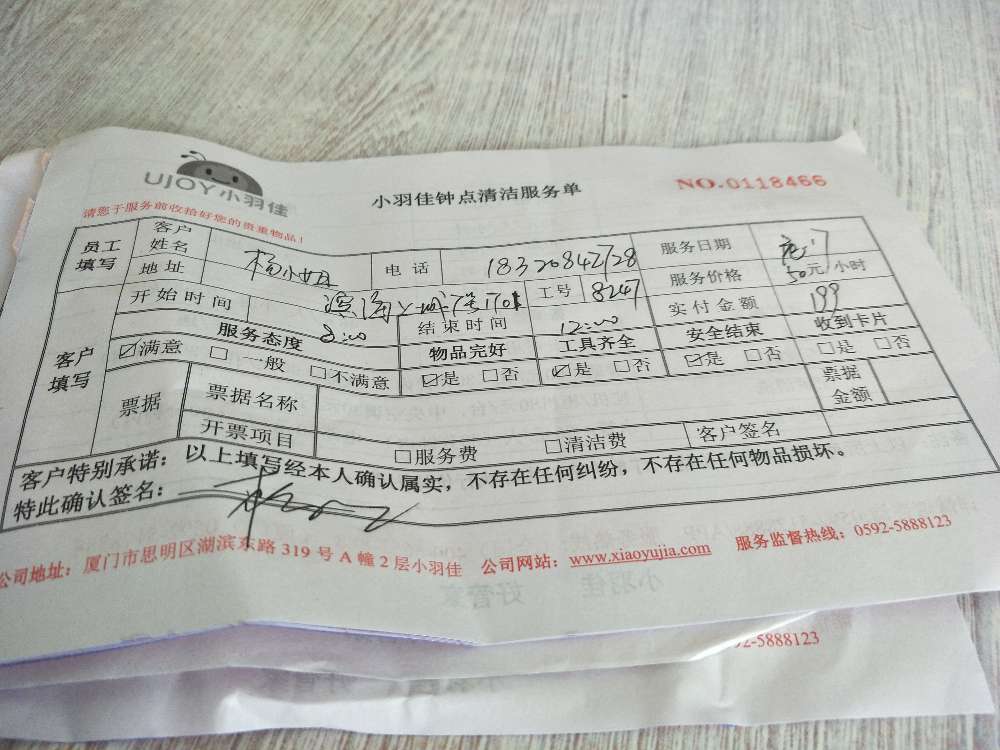 UJOY小羽佳
小羽佳钟点清洁服务单
NO.0118466
请您于服务前收拾好您的贵重物品!
员工填写 客户姓名 杨小姐 电话 18320842728 服务日期
地址 工号 8247 服务价格 50元/小时
客户填写 开始时间 8:00 结束时间 12:00 实付金额 199
服务态度 物品完好 工具齐全 安全结束 收到卡片
☑满意 □一般 □不满意 ☑是 □否 ☑是 □否 ☑是 □否 □是 □否
票据 票据名称 票据金额
开票项目 □服务费 □清洁费 客户签名
客户特别承诺:以上填写经本人确认属实,不存在任何纠纷,不存在任何物品损坏。
特此确认签名:
公司地址:厦门市思明区湖滨东路319号A幢2层小羽佳 公司网站:www.xiaoyujia.com 服务监督热线:0592-5888123
92-5888123